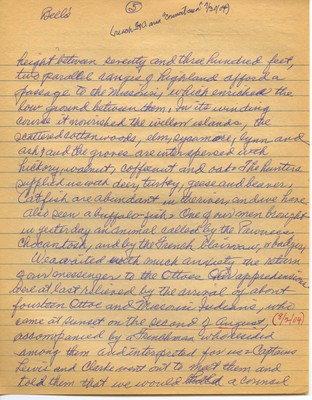 Bell's
5
height between seventy and three hundred feet,
two parallel ranges of highland afford a
passage to the Missouri, which enriched the
low ground between them, In its winding
course it nourished the willow islands, the
scattered cottonwoods, elm, sycamore, lynn and
ash, and the groves are interspersed with
hickory, walnut, coffeenut and oak. The hunters
supplied us with deer, turkey, geese and beaver,
Catfish are abundant in the river, an have here
also seen a buffalo-fish. One of our men brought
in yesterday an animal called by the Pawnees
Chocartoosh, and by the French Blaireau, or badger,
We awaited with much anxiety the return
of our messenger to the Ottoes. Our apprehensions
were at last relieved by the arrival of about
fourteen Ottoe and Missouri Indians, who
came at sunset on the second of August, (8/2/04)
accompanied by a Frenchman who resided
among them and interpreted for us. Captains
Lewis and Clark went out to meet them and
told them that we would hold a council